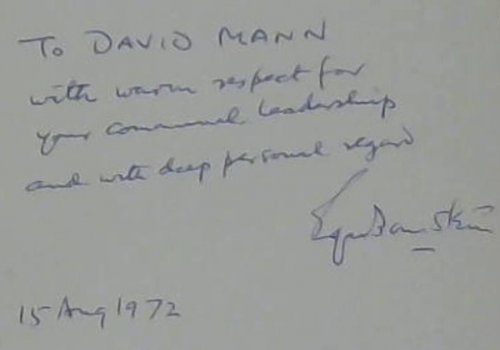 To DAVID MANN
with warm respect for
your communal leadership
and with deep personal regard
15 Aug 1972